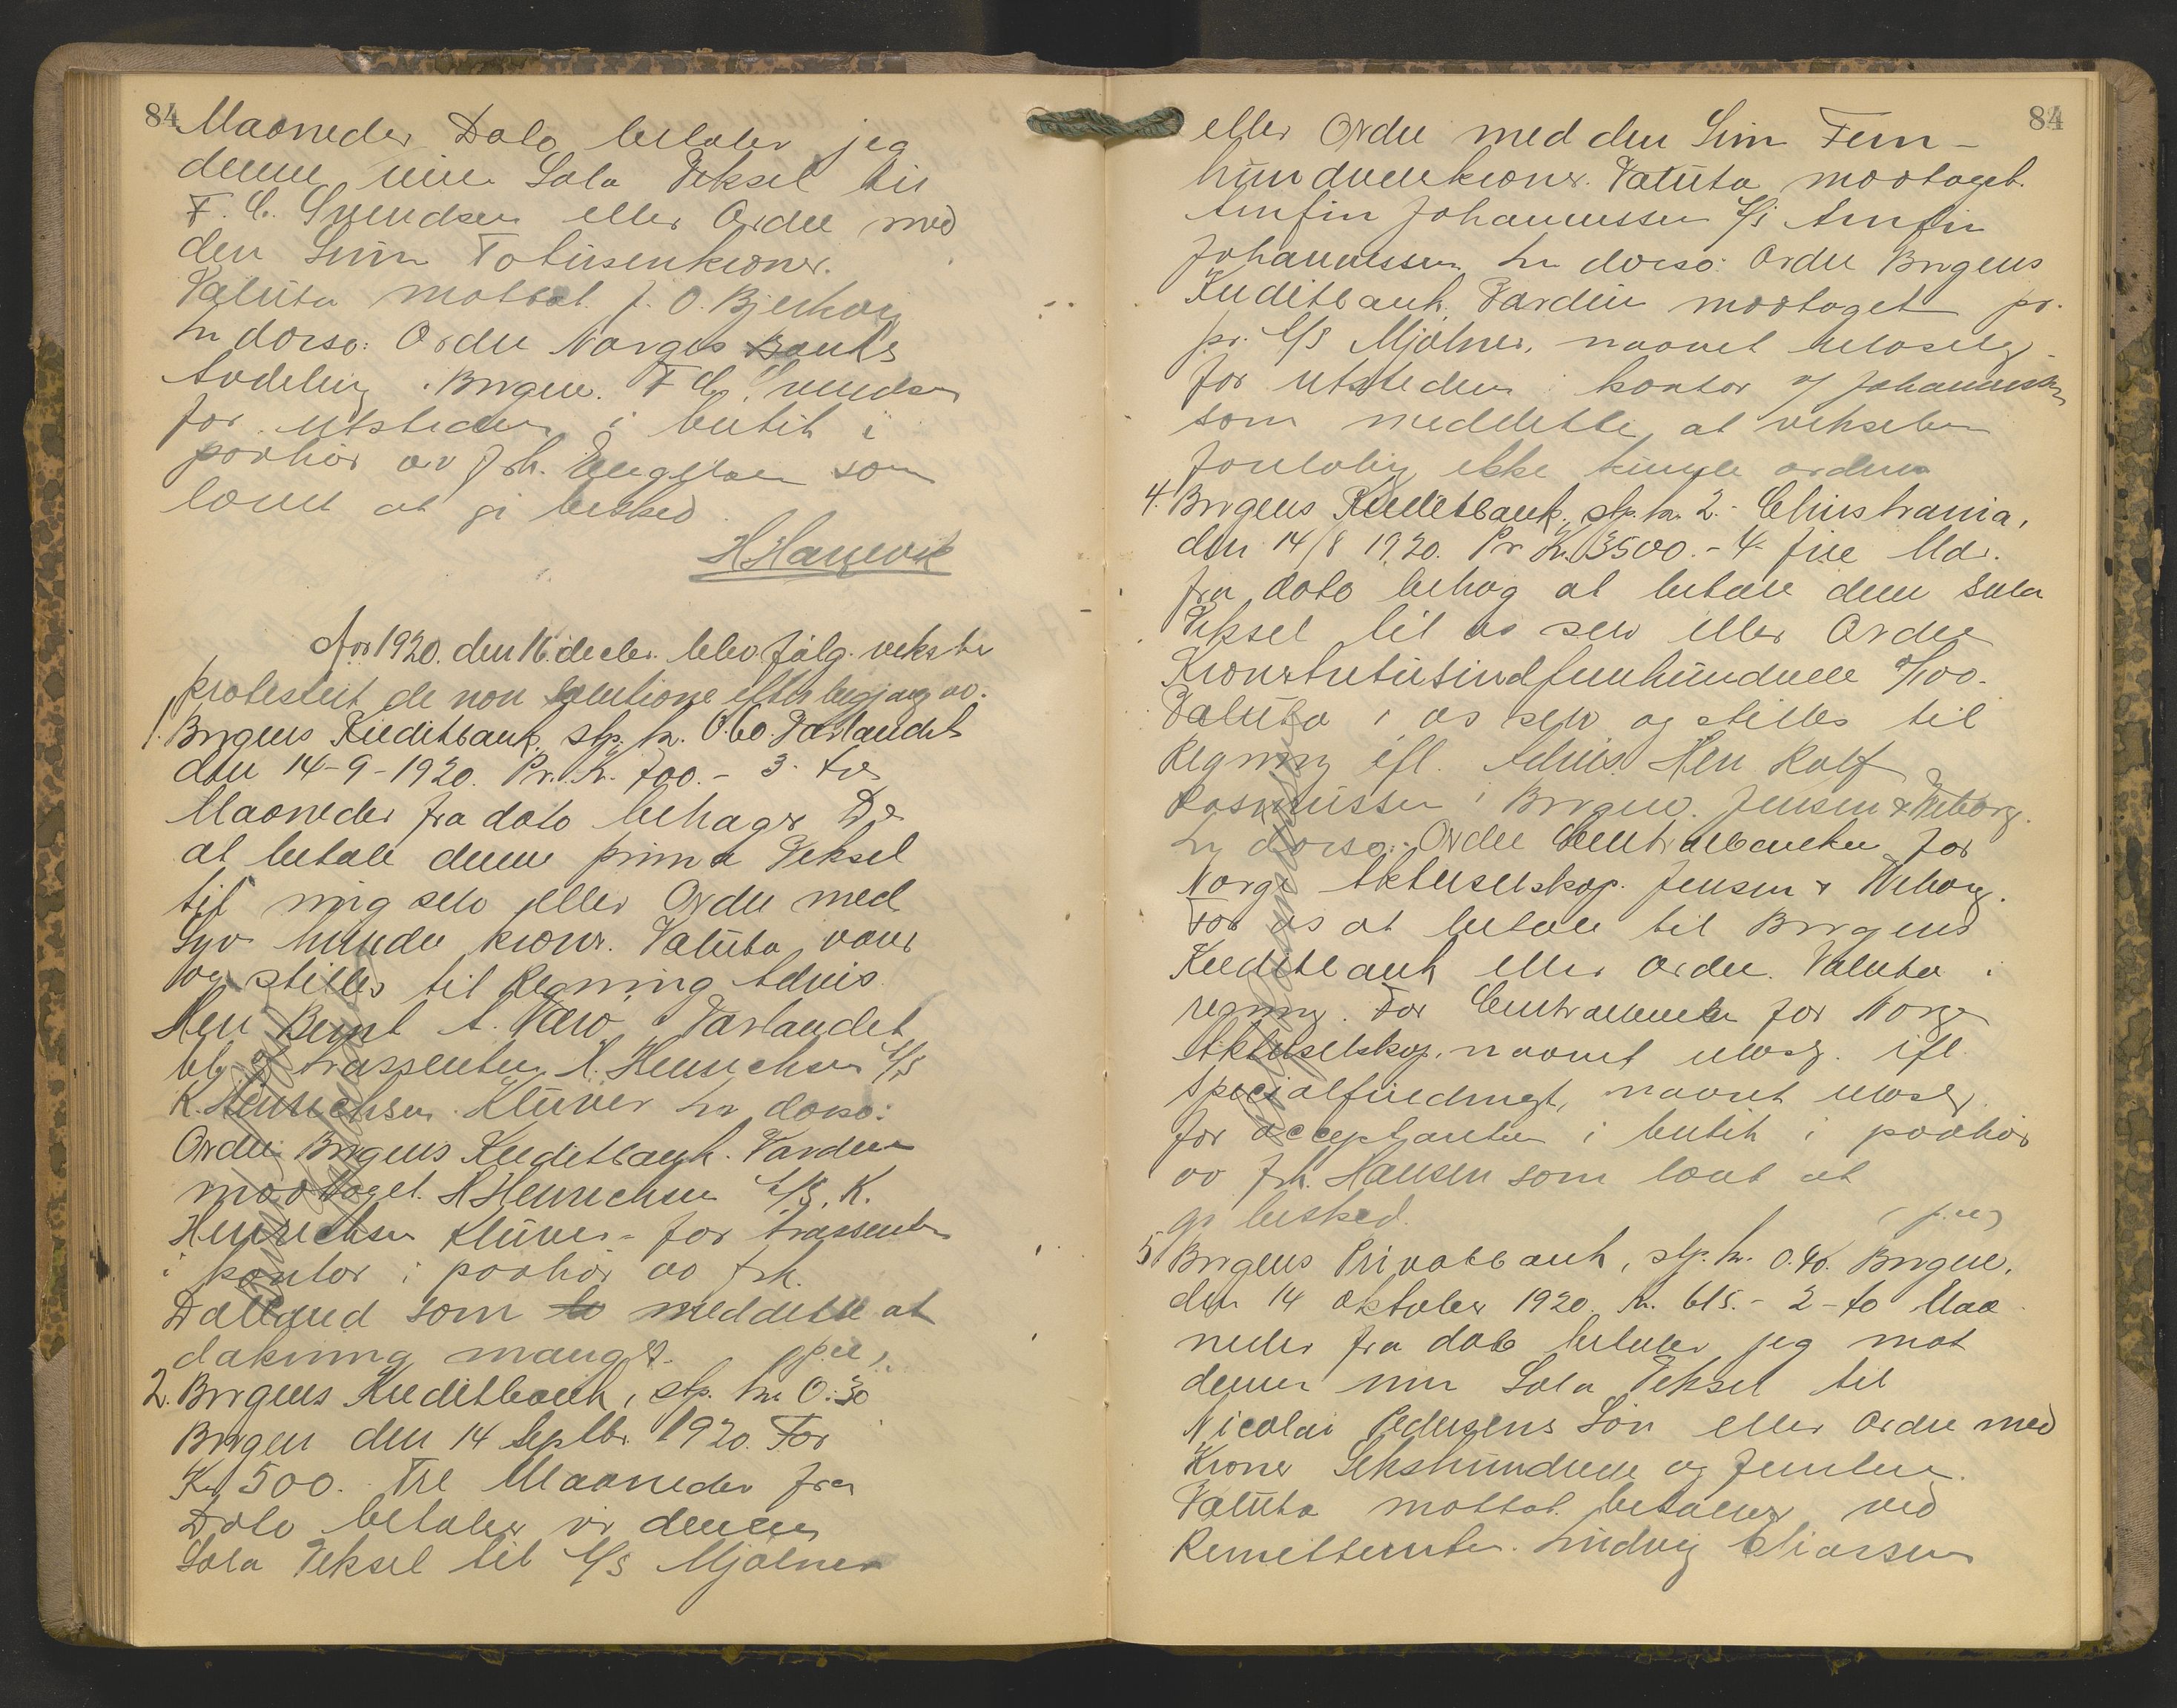 84
Maaneder Dato betaler jeg
denne min Sola Veksel til
F. C. Svendsen eller Ordre med
den Sum Totusenkroner.
Valuta mottat J. O. Bjerkvig
In dorso: Ordre Norges Banks
Avdeling Bergen. F C Svendsen
for utstederen i butik i
paahør av frk. Engelsen som
lovet at gi besked
H Haugevik
Aar 1920. den 16. decbr. blev følg. veksler
protestert de non solutione efter begjæring av.
1. Bergens Kreditbank, stp. kr. 0.60. Vaslandet
den 14-9-1920. Pr. Kr. 700.- 3. tre
Maaneder fra dato behager De
at betale denne prima Veksel
til mig selv eller Ordre med
Syv hundre kroner. Valuta
og stilles til Regning Advis.
Herr Bernt A. Vaslandet
trassenten K. Henrichsen A/S
K. Henrichsen Klüver In dorso:
Ordre Bergens Kreditbank. Værdien
mottaget. K Henrichsen A/S. K.
Henrichsen Klüver - for trassenten
i kontor i paahør av frk.
Dalland som meddelte at
dækning mangl.
2. Bergens Kreditbank, stp. kr. 0.30
Bergen den 14 Septbr. 1920. For
Kr 500. Tre Maaneder fra
Dato betaler vi denne
Sola Veksel til A/S Mjølner
84
eller Ordre med den Sum Fem-
hundredekroner. Valuta mottaget.
Arnfin Johannessen A/S Arnfin
Johannessen In dorso: Ordre Bergens
Kreditbank. Værdien mottaget pr.
pr. A/S Mjølner, navnet ulæselig
for utstederen i kontor v/ Johannessen
som meddelte at vekselen
foreløbig ikke kunde ordnes
4. Bergens Kreditbank, stp. kr. 2.- Christiania,
den 14/8 1920. Pr Kr. 3500.- 4- fire Mdr.
fra dato behag at betale denne Sola
Veksel til os selv eller Ordre
Kronertretusindfemhundrede 0/100.
Valuta i os selv og stilles til
Regning ifl. Advis. Herr Rolf
Rasmussen i Bergen. Jensen & Wiborg.
In dorso: Ordre Centralbanken for
Norge Aktieselskap. Jensen & Wiborg.
For os at betale til Bergens
Kreditbank eller ordre. Valuta i
regning. For Centralbanken for Norge
Aktieselskap, navnet ulæsg. ifl.
Specialfuldmagt, navnet ulæselg.
for acceptanten i butik i paahør
av frk. Hansen som lovet at
gi besked.
5 Bergens Privatbank, stp. kr. 0.40. Bergen,
den 14 oktober 1920. Kr. 615.- 2-to Maa
neder fra dato betaler jeg mot
denne min Sola Veksel til
Nicolai Pedersens Søn eller Ordre med
Kroner Sekshundrede og femten.
Valuta mottat. betales ved
Remittenten. Ludvig Eliassen